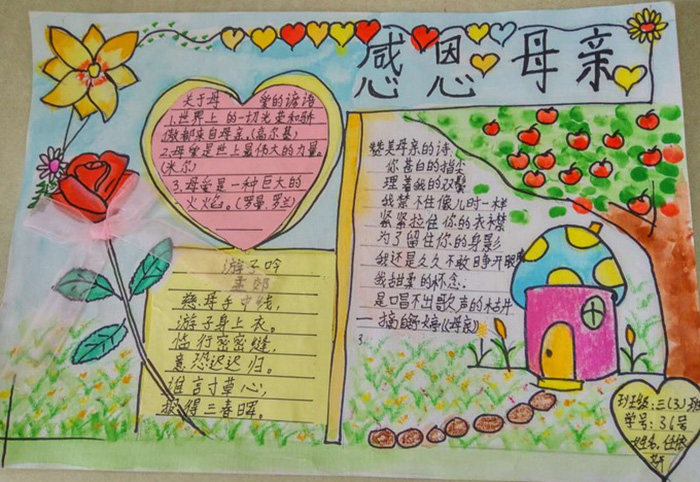 感恩母亲
关于母 爱的谚语
1.世界上 的一切光荣和骄
傲都来自母亲。(高尔基)
2.母爱是世上最伟大的力量。
(米尔)
3.母爱是一种巨大的
火焰。(罗曼.罗兰)
游子吟
孟郊
慈母手中线，
游子身上衣。
临行密密缝，
意恐迟迟归。
谁言寸草心，
报得三春晖。
赞美母亲的诗
你白的指尖
理着我的双鬓
我禁不住像儿时一样
紧紧拉住你的衣襟
为了留住你的身影
我还是久久不敢睁开眼
我甜柔的怀念。
是唱不出歌声的古井
一摘自舒婷《母亲》
班级：三(3)班
学号：36号
姓名：任依